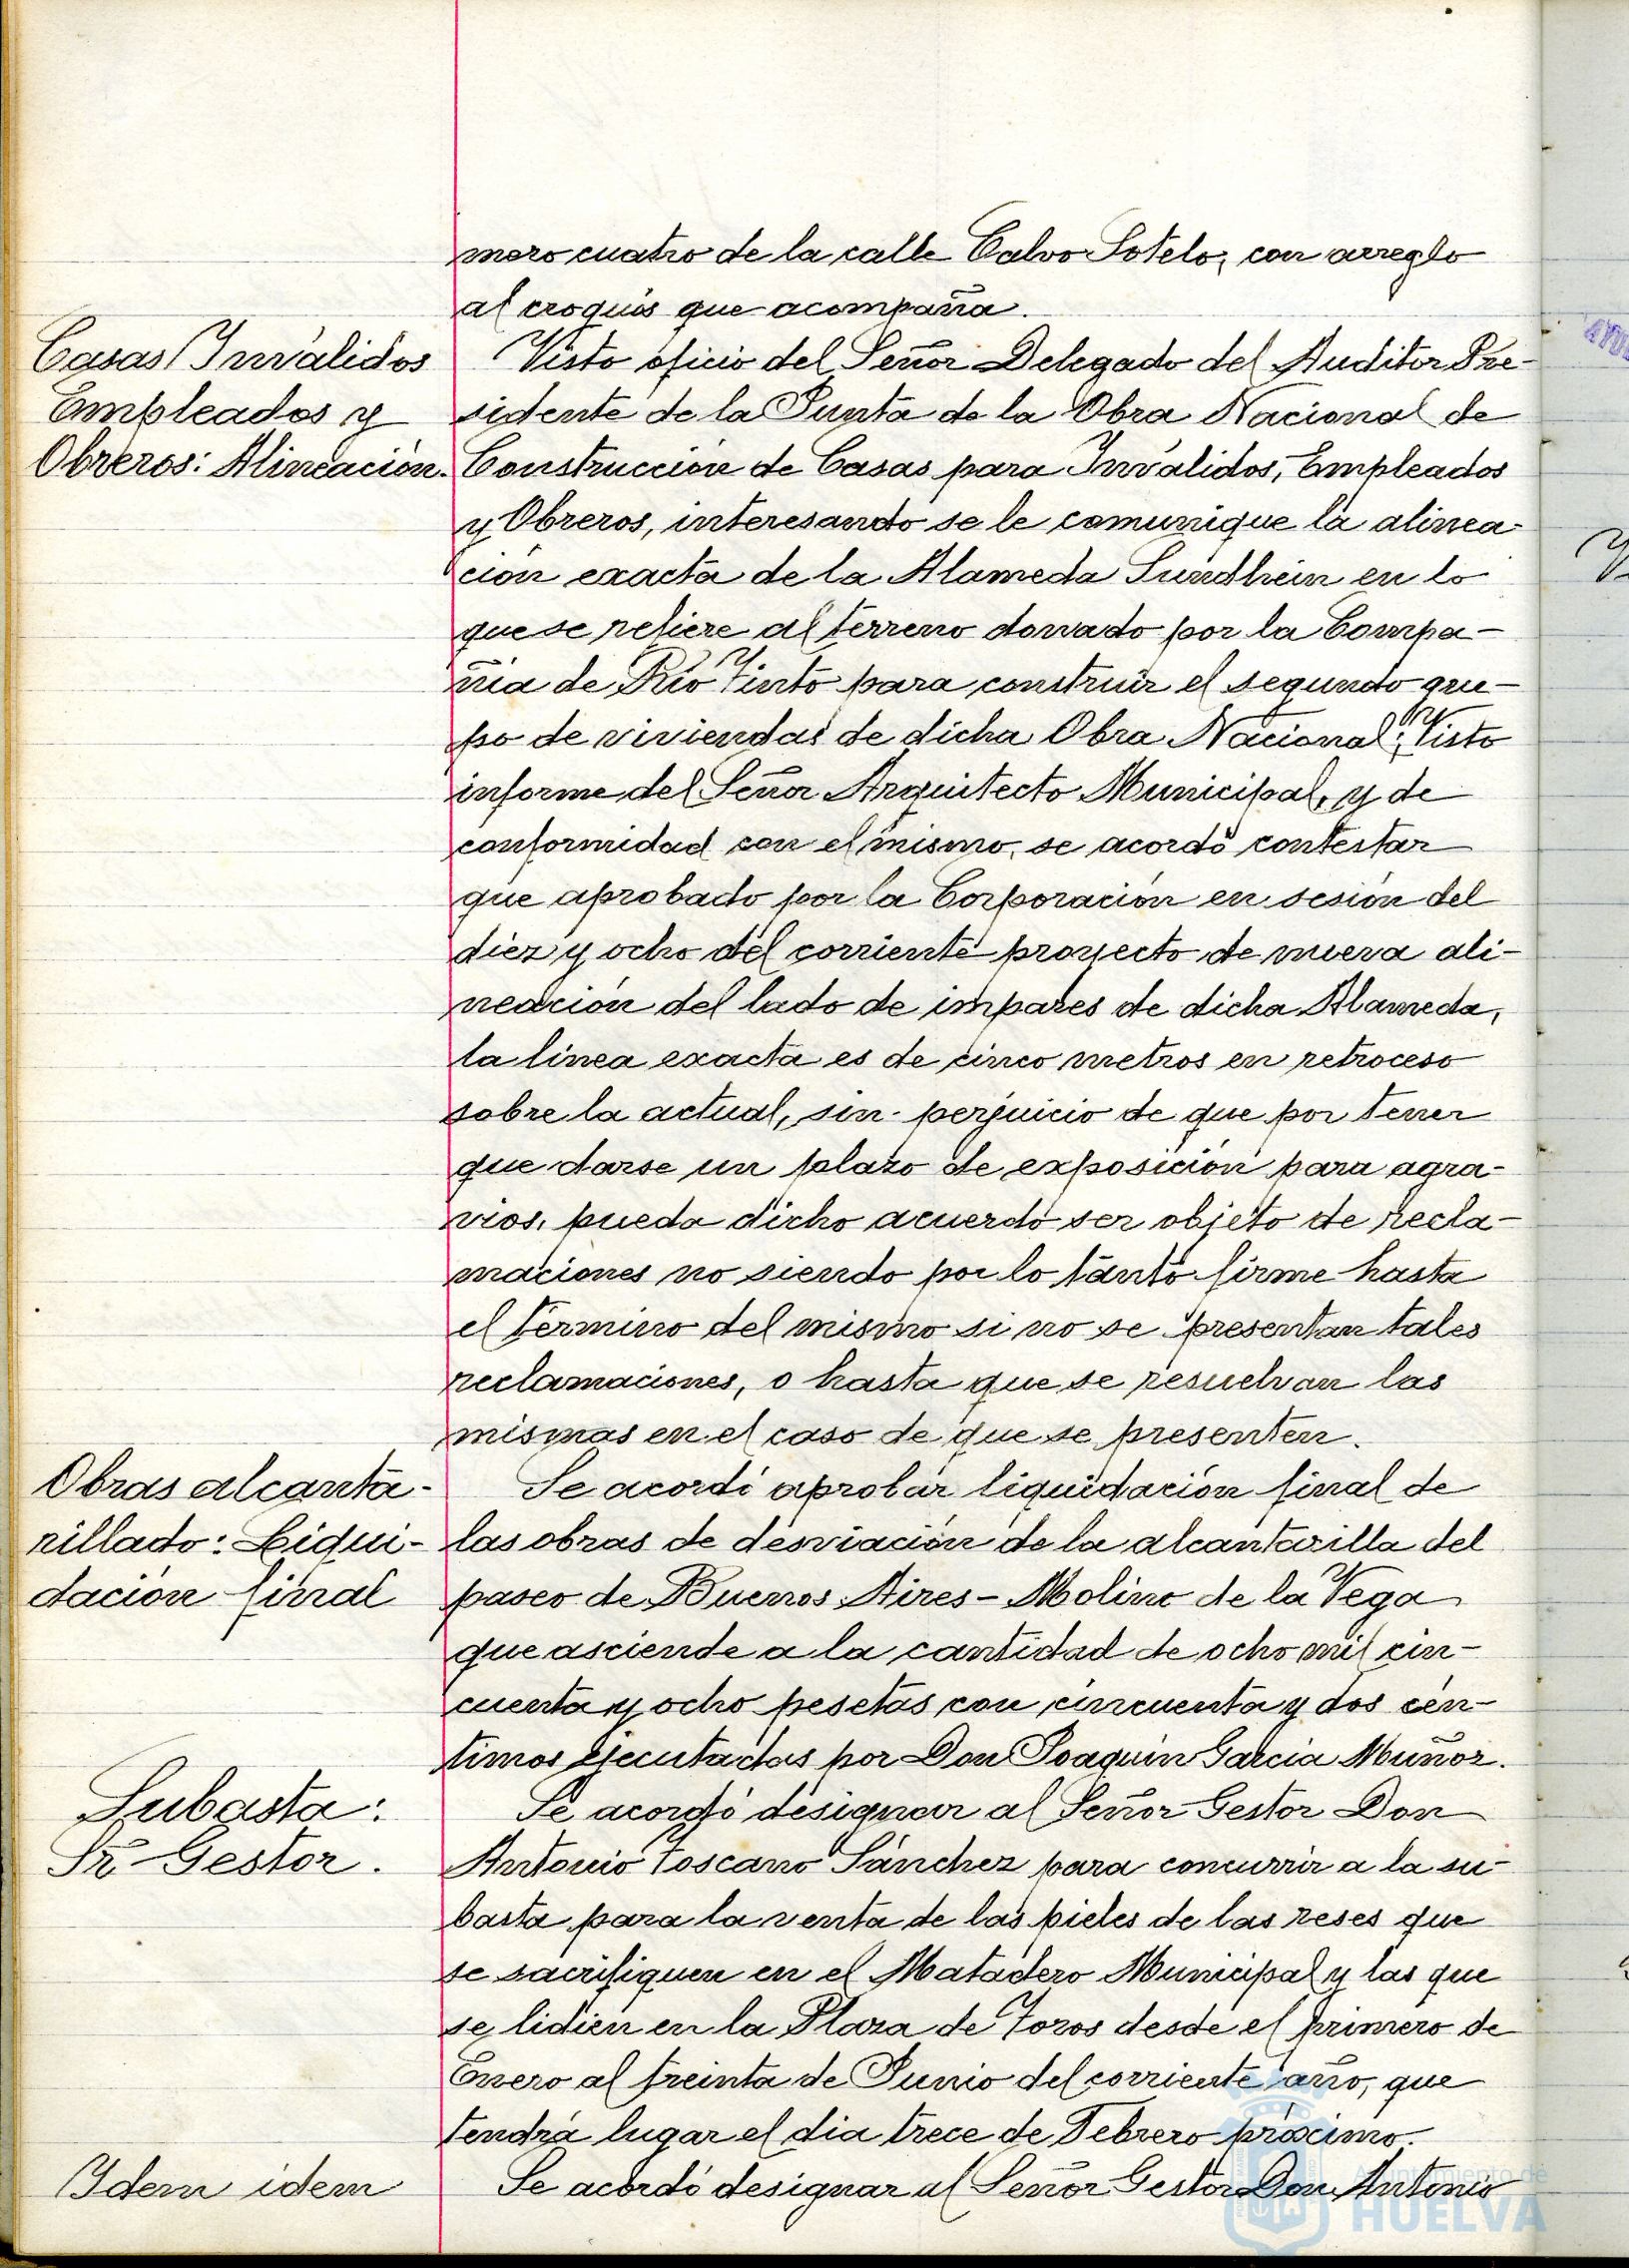 mero cuatro de la calle Calvo Sotelo, con arreglo
al croquis que acompaña.
Casas Inválidos
Empleados y
Obreros: Alineación.
Visto oficio del Señor Delegado del Auditor Pre-
sidente de la Junta de la Obra Nacional de
Construccion de Casas para Inválidos, Empleados
y Obreros, interesando se le comunique la alinea-
ción exacta de la Alameda Sundhein en lo
que se refiere al terreno donado por la Compa-
ñia de Rio Tinto para construir el segundo gru-
po de viviendas de dicha Obra Nacional; Visto
informe del Señor Arquitecto Municipal, y de
conformidad con el mismo, se acordó contestar
que aprobado por la Corporación en sesión del
diez y ocho del corriente proyecto de nueva ali-
neación del lado de impares de dicha Alameda,
la linea exacta es de cinco metros en retroceso
sobre la actual, sin perjuicio de que por tener
que darse un plazo de exposición para agra-
vios, pueda dicho acuerdo ser objeto de recla-
maciones no siendo por lo tanto firme hasta
el término del mismo si no se presentan tales
reclamaciones, o hasta que se resuelvan las
mismas en el caso de que se presenten.
Obras alcanta-
rillado: Liqui-
dación final
Se acordó aprobar liquidación final de
las obras de desviación de la alcantarilla del
paseo de Buenos Aires - Molino de la Vega
que asciende a la cantidad de ocho mil cin-
cuenta y ocho pesetas con cincuenta y dos cén-
timos ejecutadas por Don Joaquin Garcia Muñoz.
Subasta:
Sr. Gestor.
Se acordó designar al Señor Gestor Don
Antonio Toscano Sánchez para concurrir a la su-
basta para la venta de las pieles de las reses que
se sacrifiquen en el Matadero Municipal y las que
se lidien en la Plaza de Toros desde el primero de
Enero al treinta de Junio del corriente año, que
tendrá lugar el dia trece de Febrero próximo.
Idem idem
Se acordó designar al Señor Gestor Don Antonio
Ayuntamiento de
HUELVA